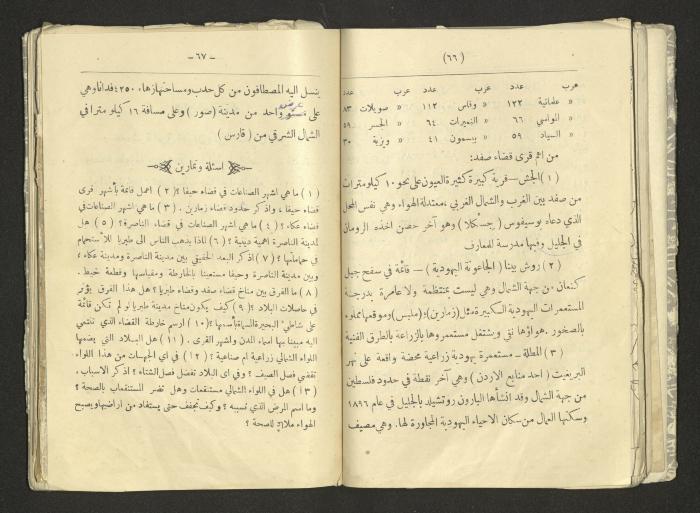 (٦٦)
عرب عدد عرب عدد عرب عدد
« علمانية ١٢٢ « وقاص ١١٢ « صويلات ٨٣
« المواسي ٦٦ « النميرات ٦٤ « الحسر ٥٩
« السياد ٥٩ « بيسمون ٤١ « ويزية ٣٠
من اهم قرى قضاء صفد:
(١) الجش – قرية كبيرة كثيرة العيون على نحو ١٠ كيلو مترات
من صفد بين الغرب والشمال الغربي، معتدلة الهواء وهي نفس المحل
الذي دعاه يوسيفوس (جسكلا) وهو آخر حصن اخذه الرومان
في الجليل وفيها مدرسة للمعارف
(٢) روش بينا (الجاعونة اليهودية) – قائمة في سفح جبل
كنعان من جهة الشمال وهي ليست بمنتظمة ولا عامرة بدرجة
المستعمرات اليهودية الكبيرة مثل (زمارين) و(ملبس) وموقعها مملوء
بالصخور. هواؤها نقي ويشتغل مستعمروها بالزراعة بالطرق الفنية
(٣) المطلة – مستعمرة يهودية زراعية محضة واقعة على نهر
البريغيت (احد منابع الاردن) وهي آخر نقطة في حدود فلسطين
من جهة الشمال وقد انشأها البارون روتشيلد بالجليل في عام ١٨٩٦
وسكنها العمال من سكان الاحياء اليهودية المجاورة لها. وهي مصيف
– ٦٧ –
ينسل اليه المصطافون من كل حدب ومساحتها زهاء ٤٢٥٠ فدانا وهي
على عرض واحد من مدينة (صور) وعلى مسافة ١٦ كيلو مترا في
الشمال الشرقي من (قارس)
اسئلة وتمارين
(١) ما هي اشهر الصناعات في قضاء حيفا؟ (٢) اعمل قائمة بأشهر قرى
قضاء حيفا، واذكر حدود قضاء زمارين. (٣) ما هي اشهر الصناعات في
قضاء عكا؟ (٤) ما هي اشهر الصناعات في قضاء الناصرة؟ (٥) هل
لمدينة الناصرة اهمية دينية؟ (٦) لماذا يذهب الناس الى طبريا للاستحمام
في حماماتها؟ (٧) اذكر البعد الحقيقي بين مدينة الناصرة ومدينة عكاء؛
وبين مدينة الناصرة وحيفا مستعينا بالخارطة ومقياسها وقطعة خيط.
(٨) ما الفرق بين مناخ قضاء صفد وقضاء طبريا؟ هل هذا الفرق يؤثر
في حاصلات البلاد؟ (٩) كيف يكون مناخ مدينة طبريا لو لم تكن قائمة
على شاطئ البحيرة المسماة بأسمها؟ (١٠) ارسم خارطة القضاء الذي تنتمي
اليه مبينا بها اسماء المدن واشهر القرى. (١١) هل البلاد التي يضمها
اللواء الشمالي زراعية ام صناعية؟ (١٢) في اي الجهات من هذا اللواء
تقضي فصل الصيف؟ وفي اي البلاد تفضل فصل الشتاء؟ اذكر الاسباب.
(١٣) هل في اللواء الشمالي مستنقعات وهل تضر المستنقعات بالصحة؟
وما اسم المرض الذي تسببه؟ وكيف تجفف حتى يستفاد من اراضيها ويصبح
الهواء ملائما للصحة؟